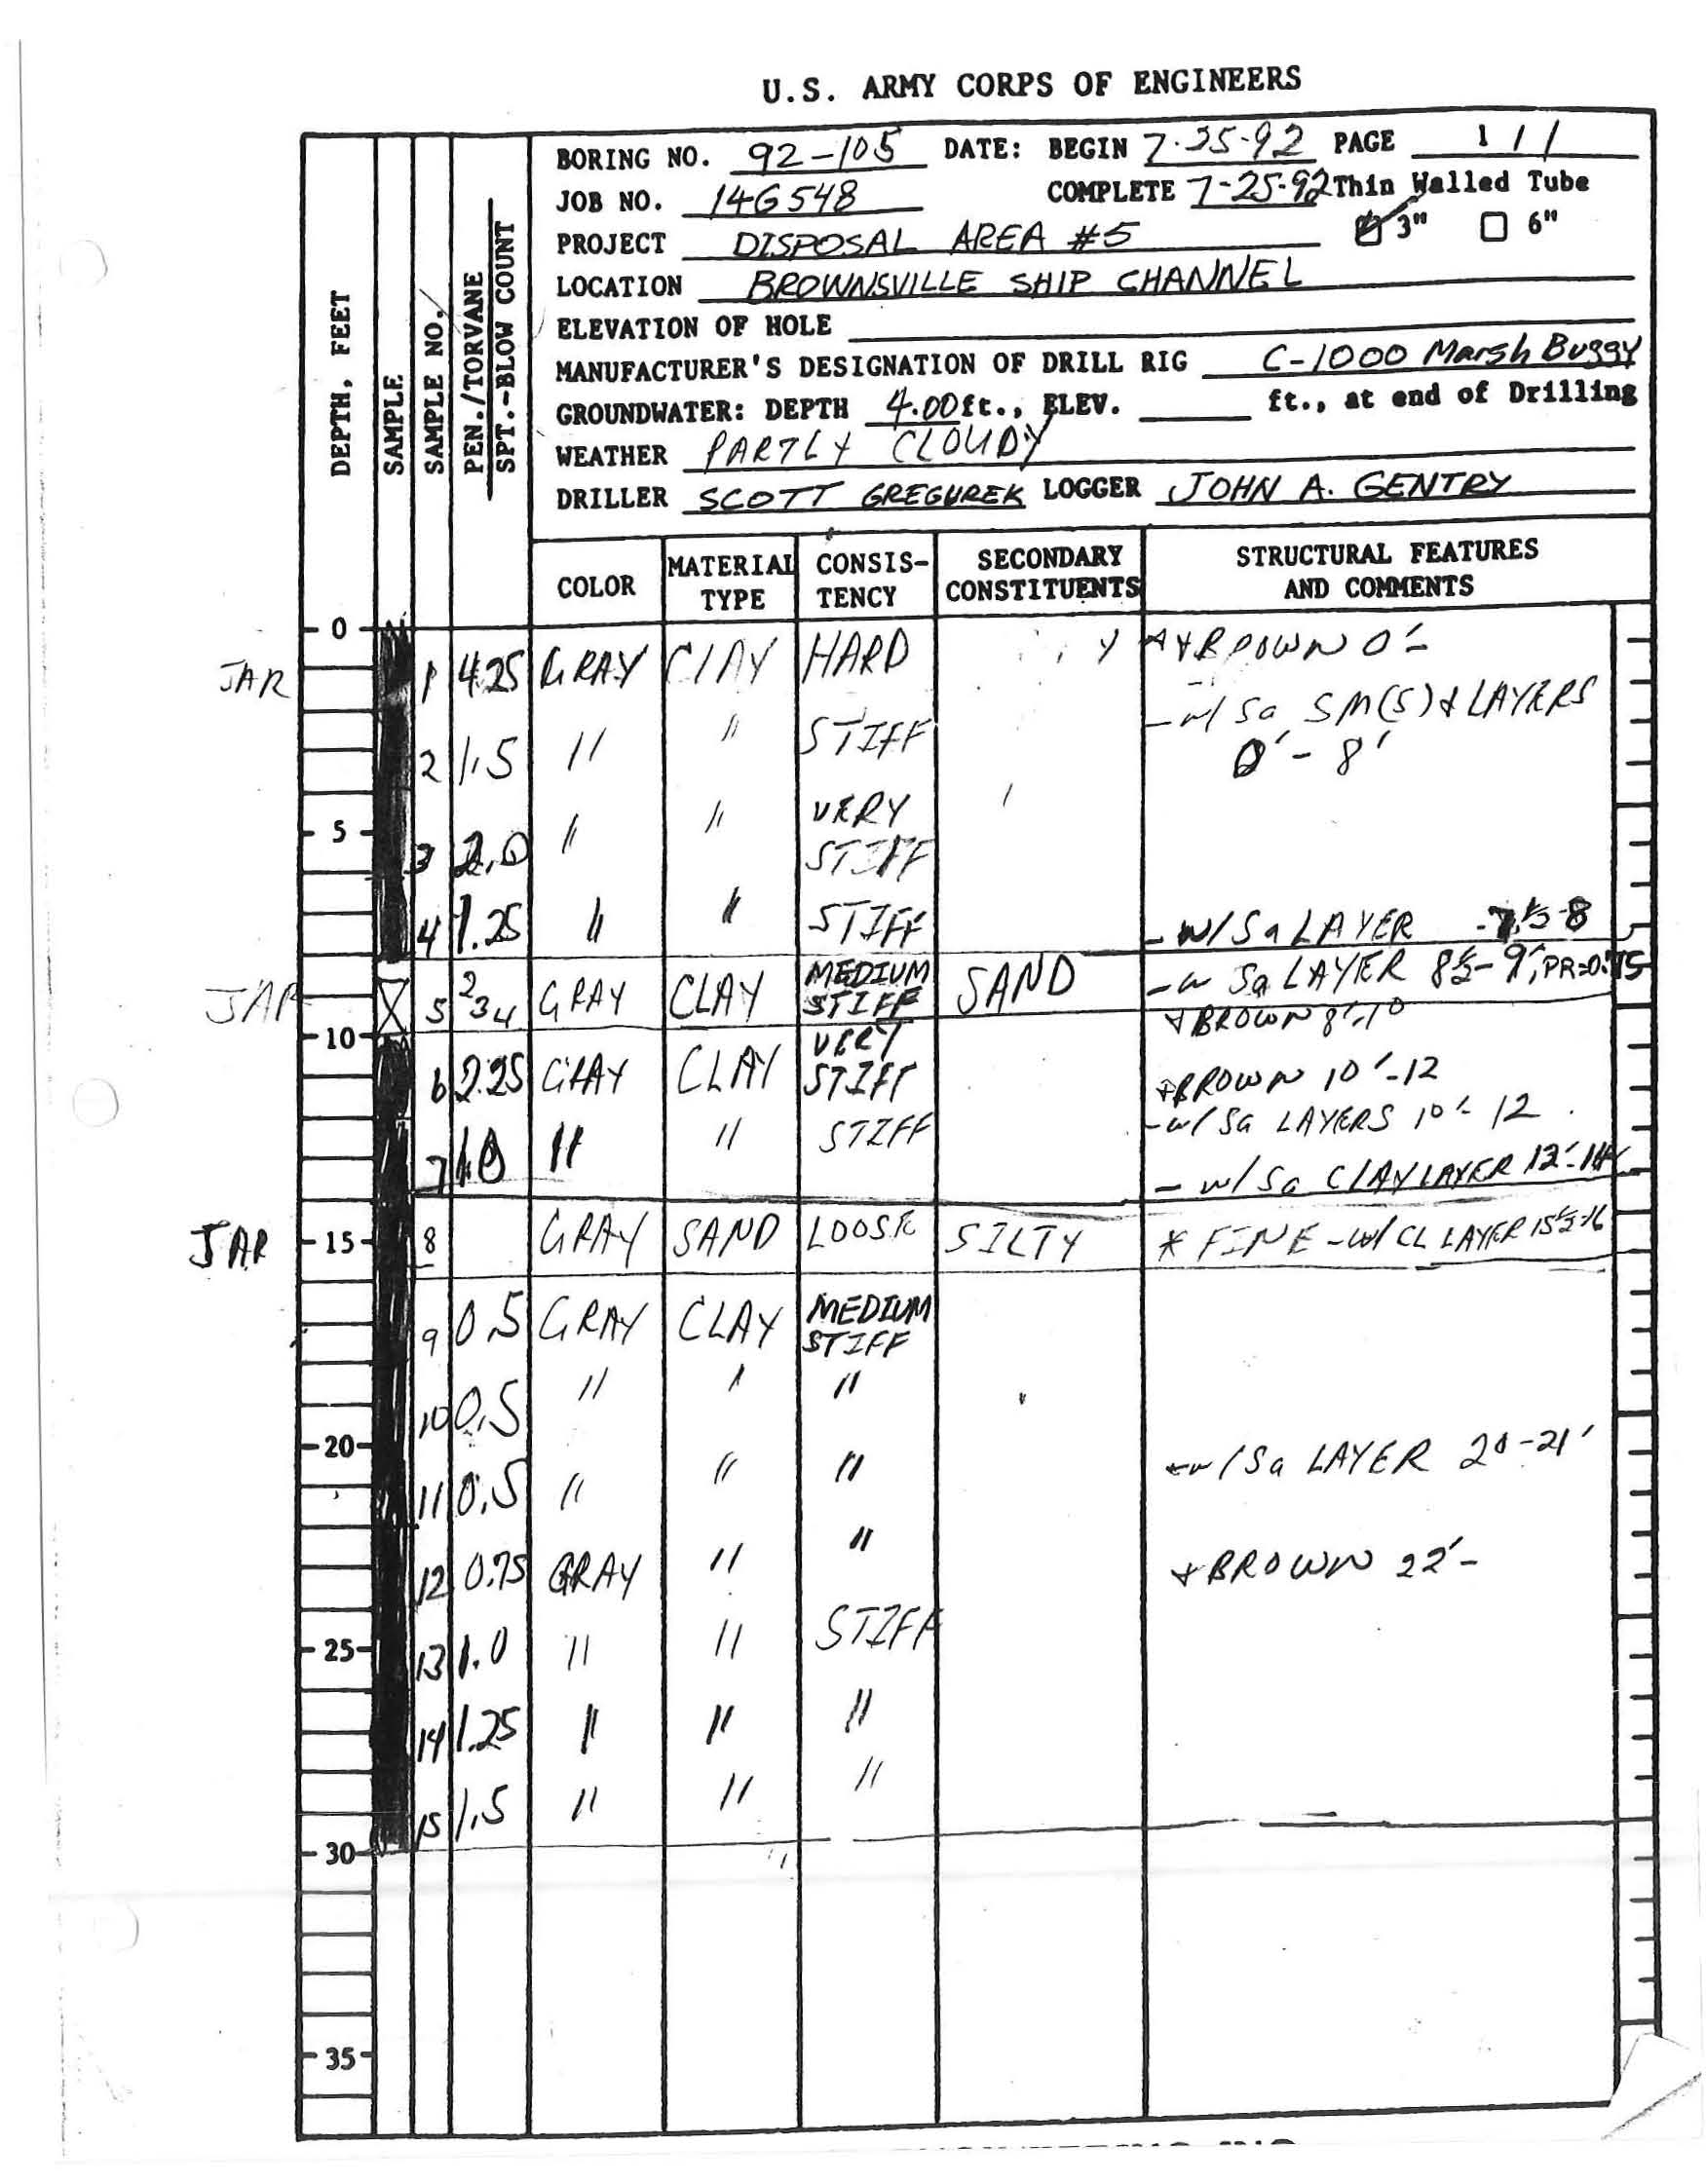 U.S. ARMY CORPS OF ENGINEERS
BORING NO. 92-105 DATE: BEGIN 7-25-92 PAGE 1 / 1
JOB NO. 14G548 COMPLETE 7-25-92 Thin Walled Tube
PROJECT DISPOSAL AREA #5 3" 6"
LOCATION BROWNSVILLE SHIP CHANNEL
ELEVATION OF HOLE
MANUFACTURER'S DESIGNATION OF DRILL RIG C-1000 Marsh Buggy
GROUNDWATER: DEPTH 4.00 ft., ELEV. ft., at end of Drilling
WEATHER PARTLY CLOUDY
DRILLER SCOTT GREGUREK LOGGER JOHN A. GENTRY
DEPTH, FEET
SAMPLE
SAMPLE NO.
PEN./TORVANE
SPT.-BLOW COUNT
COLOR MATERIAL TYPE CONSISTENCY SECONDARY CONSTITUENTS STRUCTURAL FEATURES AND COMMENTS
0
JAR 1 4.25 GRAY CLAY HARD + BROWN 0'-
-w/ Sa SM(S) & LAYERS
2 1.5 " " STIFF 0'-8'
5 3 2.0 " " VERY STIFF
4 1.25 " " STIFF -w/Sa LAYER -7½-8
JAR 5 2 3 4 GRAY CLAY MEDIUM STIFF SAND -w Sa LAYER 8½-9', PR=0.75
+ BROWN 8'-10
10
6 2.25 GRAY CLAY VERY STIFF +BROWN 10'-12
-w/ Sa LAYERS 10'-12
7 1.0 " " STIFF
- w/ Sa CLAY LAYER 12'-14'
JAR 15 8 GRAY SAND LOOSE SILTY * FINE -w/ CL LAYER 15½-16
9 0.5 GRAY CLAY MEDIUM STIFF
10 0.5 " " "
20 -w/Sa LAYER 20-21'
11 0.5 " " "
12 0.75 GRAY " " + BROWN 22'-
25 13 1.0 " " STIFF
14 1.25 " " "
15 1.5 " " "
30
35